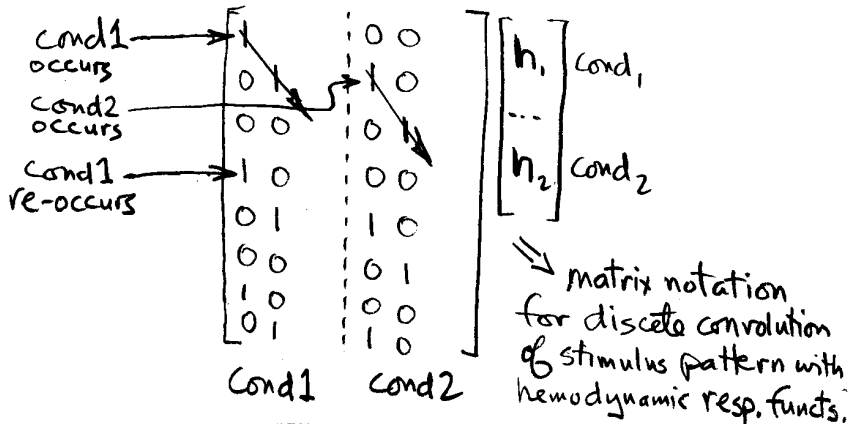 cond1
occurs
cond2
occurs
cond1
re-occurs
1 0 0
0 1 1 0
0 0 0 1
1 0 0 0
0 1 1 0
0 0 0 1
1 0 0 0
0 1 1 0
Cond1 cond2
h₁ cond₁
...
h₂ cond₂
⇒ matrix notation
for discete convolution
of stimulus pattern with
hemodynamic resp. functs.